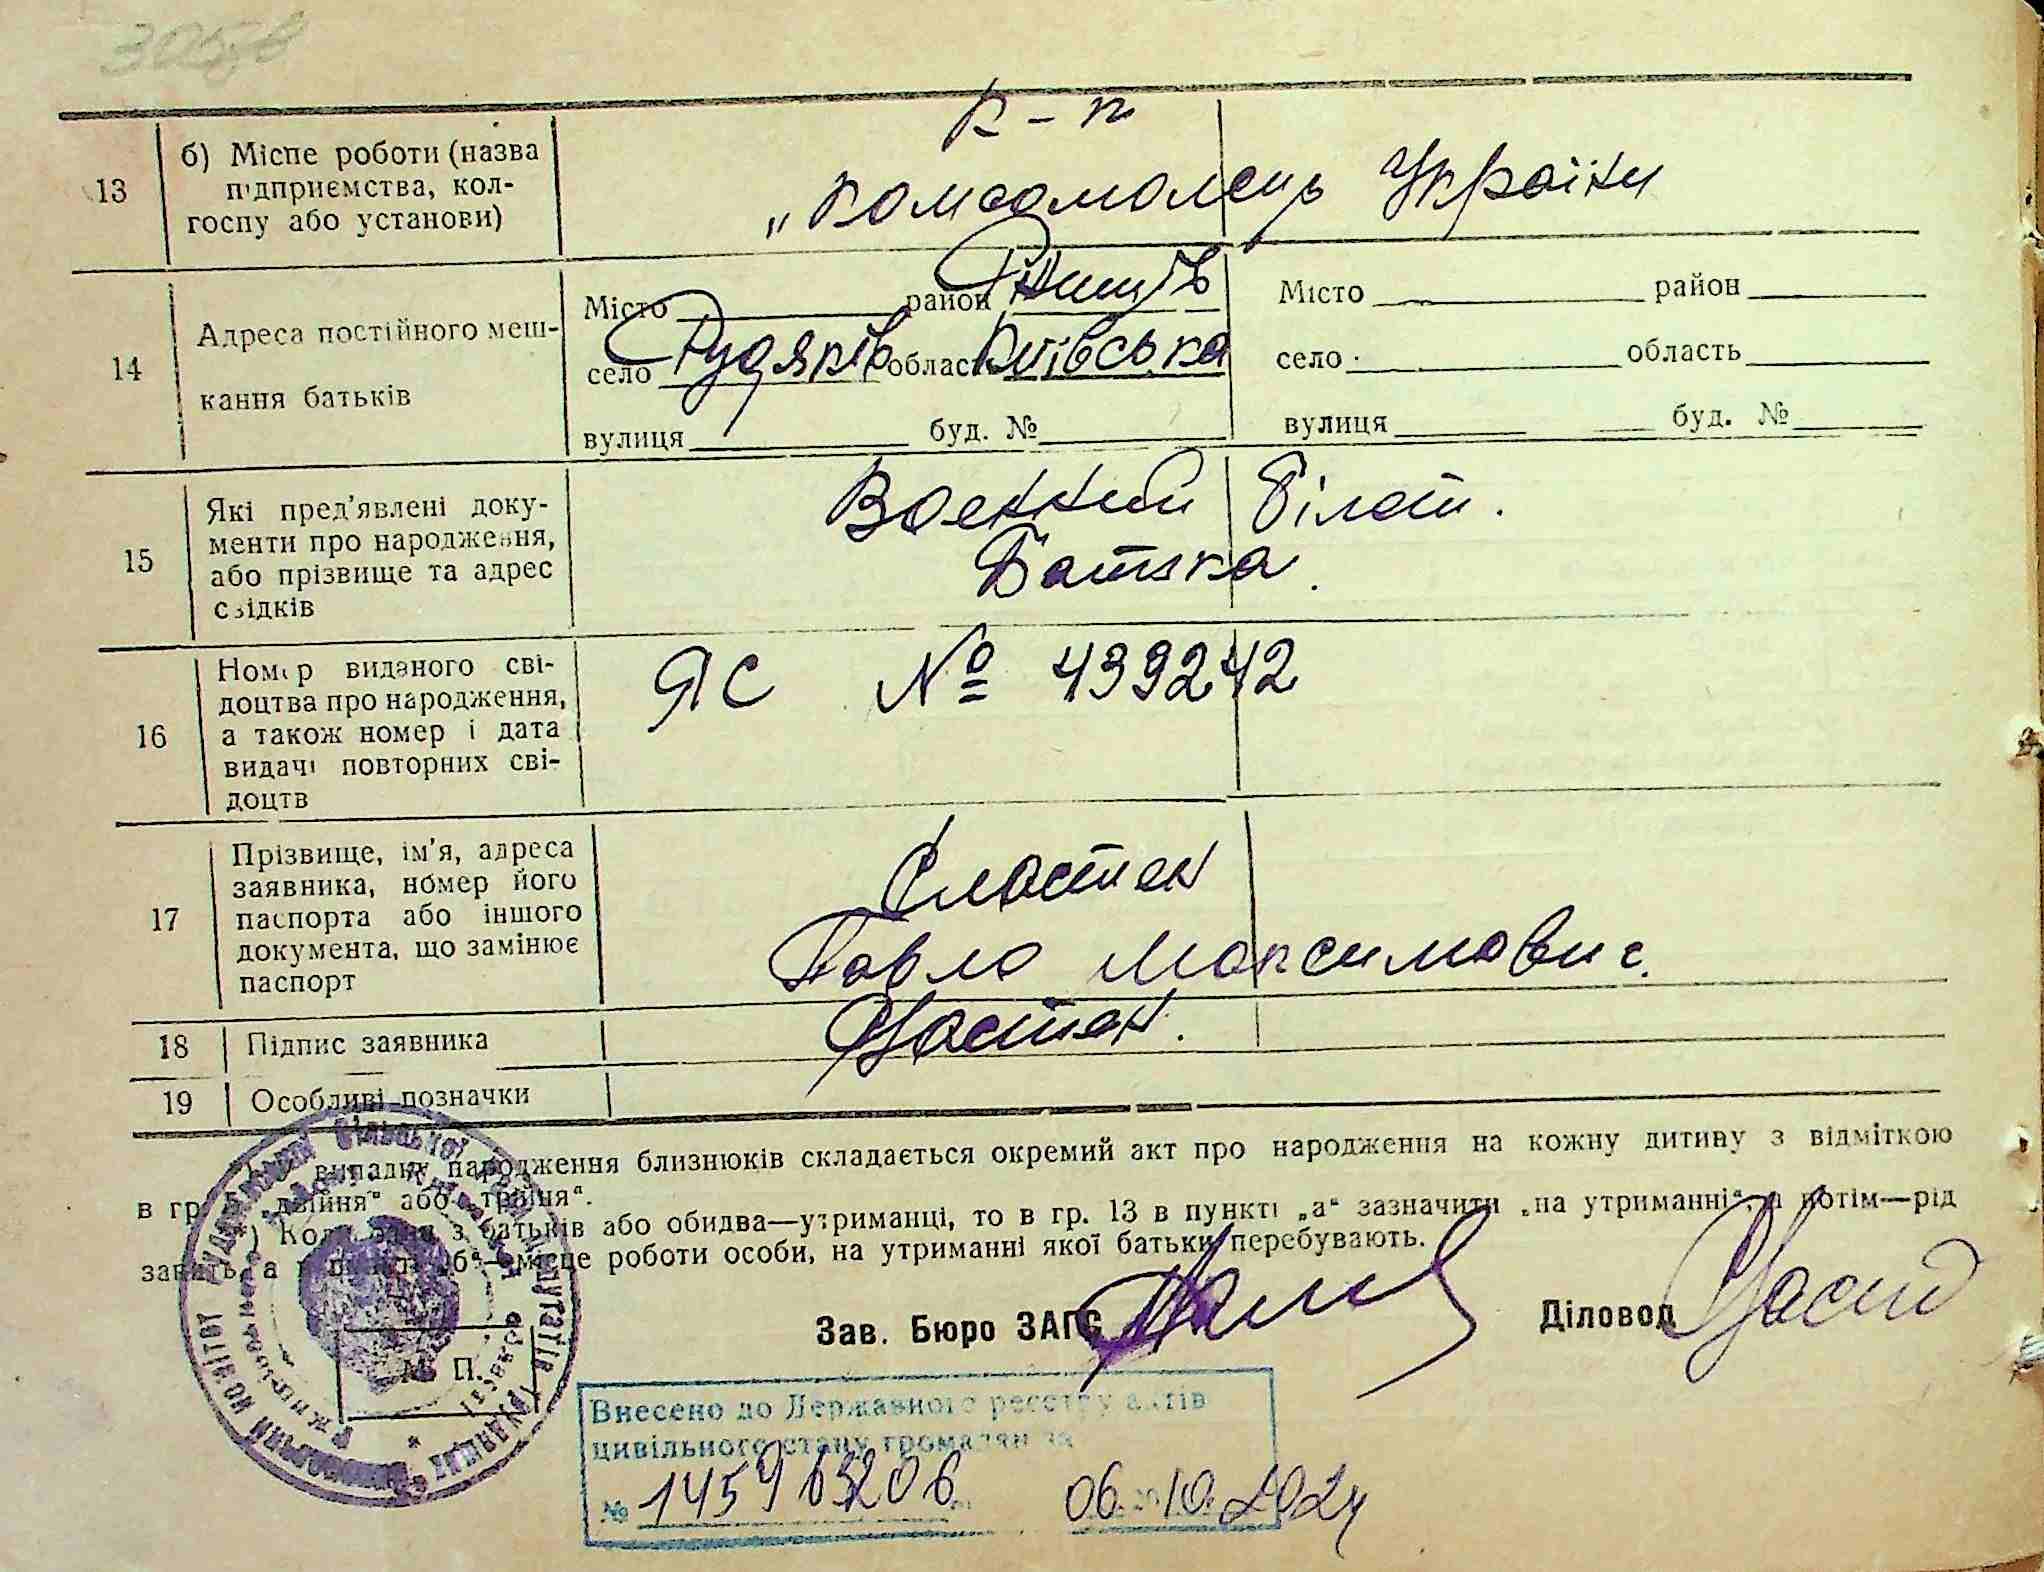 13 б) Місце роботи (назва
підприємства, кол-
госпу або установи)
к-п
„Комсомолець України
14 Адреса постійного меш-
кання батьків
Місто район Ржищів
село Рудяків область Київська
вулиця буд. №
Місто район
село область
вулиця буд. №
15 Які пред'явлені доку-
менти про народження,
або прізвище та адрес
свідків
Военний білет.
Батька.
16 Номер виданого сві-
доцтва про народження,
а також номер і дата
видачі повторних сві-
доцтв
ЯС № 439242
17 Прізвище, ім'я, адреса
заявника, номер його
паспорта або іншого
документа, що замінює
паспорт
Сластен
Павло Максимович.
18 Підпис заявника
Сластен.
19 Особливі позначки
випадку народження близнюків складається окремий акт про народження на кожну дитину з відміткою
в гр. „двійня“ або „трійня“.
*) Коли з батьків або обидва—утриманці, то в гр. 13 в пункті „а“ зазначити „на утриманні“, а потім—рід
занять, а „б“—місце роботи особи, на утриманні якої батьки перебувають.
Зав. Бюро ЗАГС
Діловод
М. П.
Внесено до Державного реєстру актів
цивільного стану громадян за
№ 145913206 06.10.2024